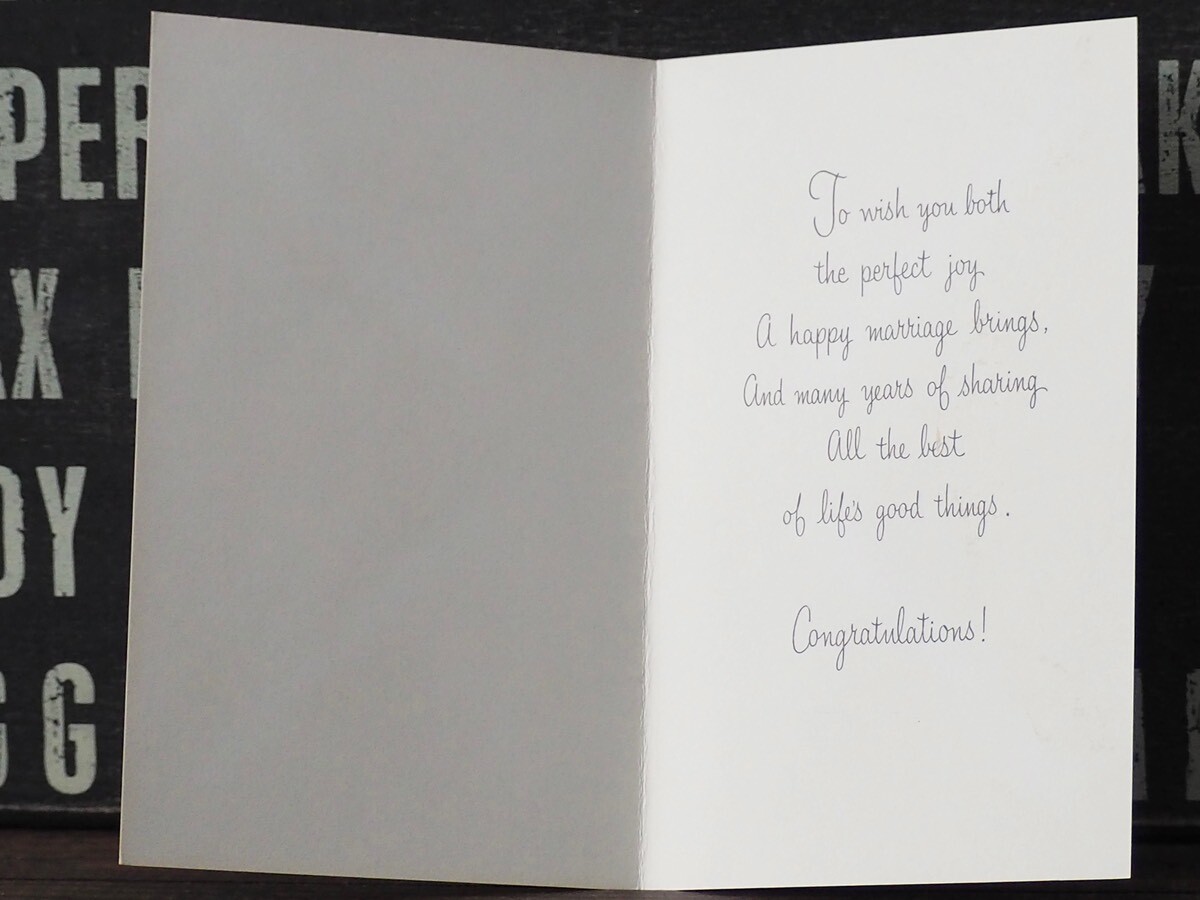 To wish you both
the perfect joy
A happy marriage brings,
And many years of sharing
All the best
of life's good things.
Congratulations!